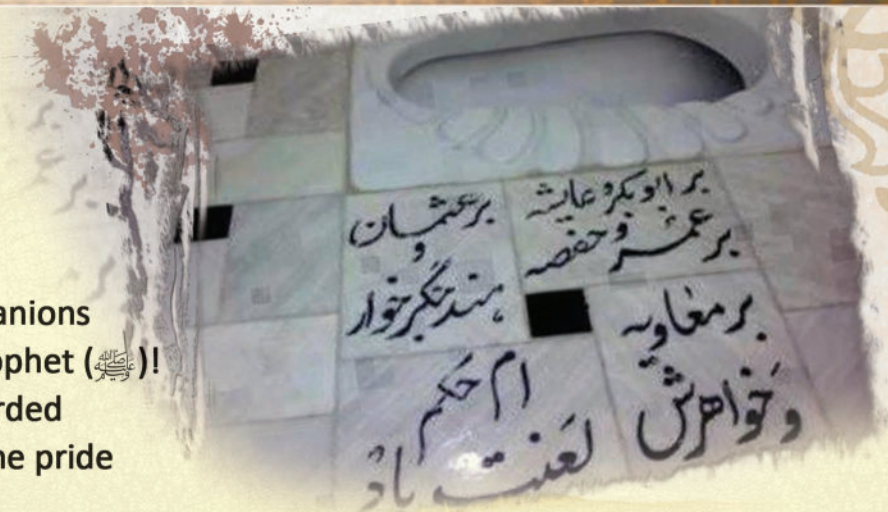 anions
ophet (ﷺ)!
rded
he pride
بر ابوبکر و عایشه
بر عمر و حفصه
بر عثمان
و
هند جگرخوار
بر معاویه
و خواهرش
ام حکم
لعنت باد